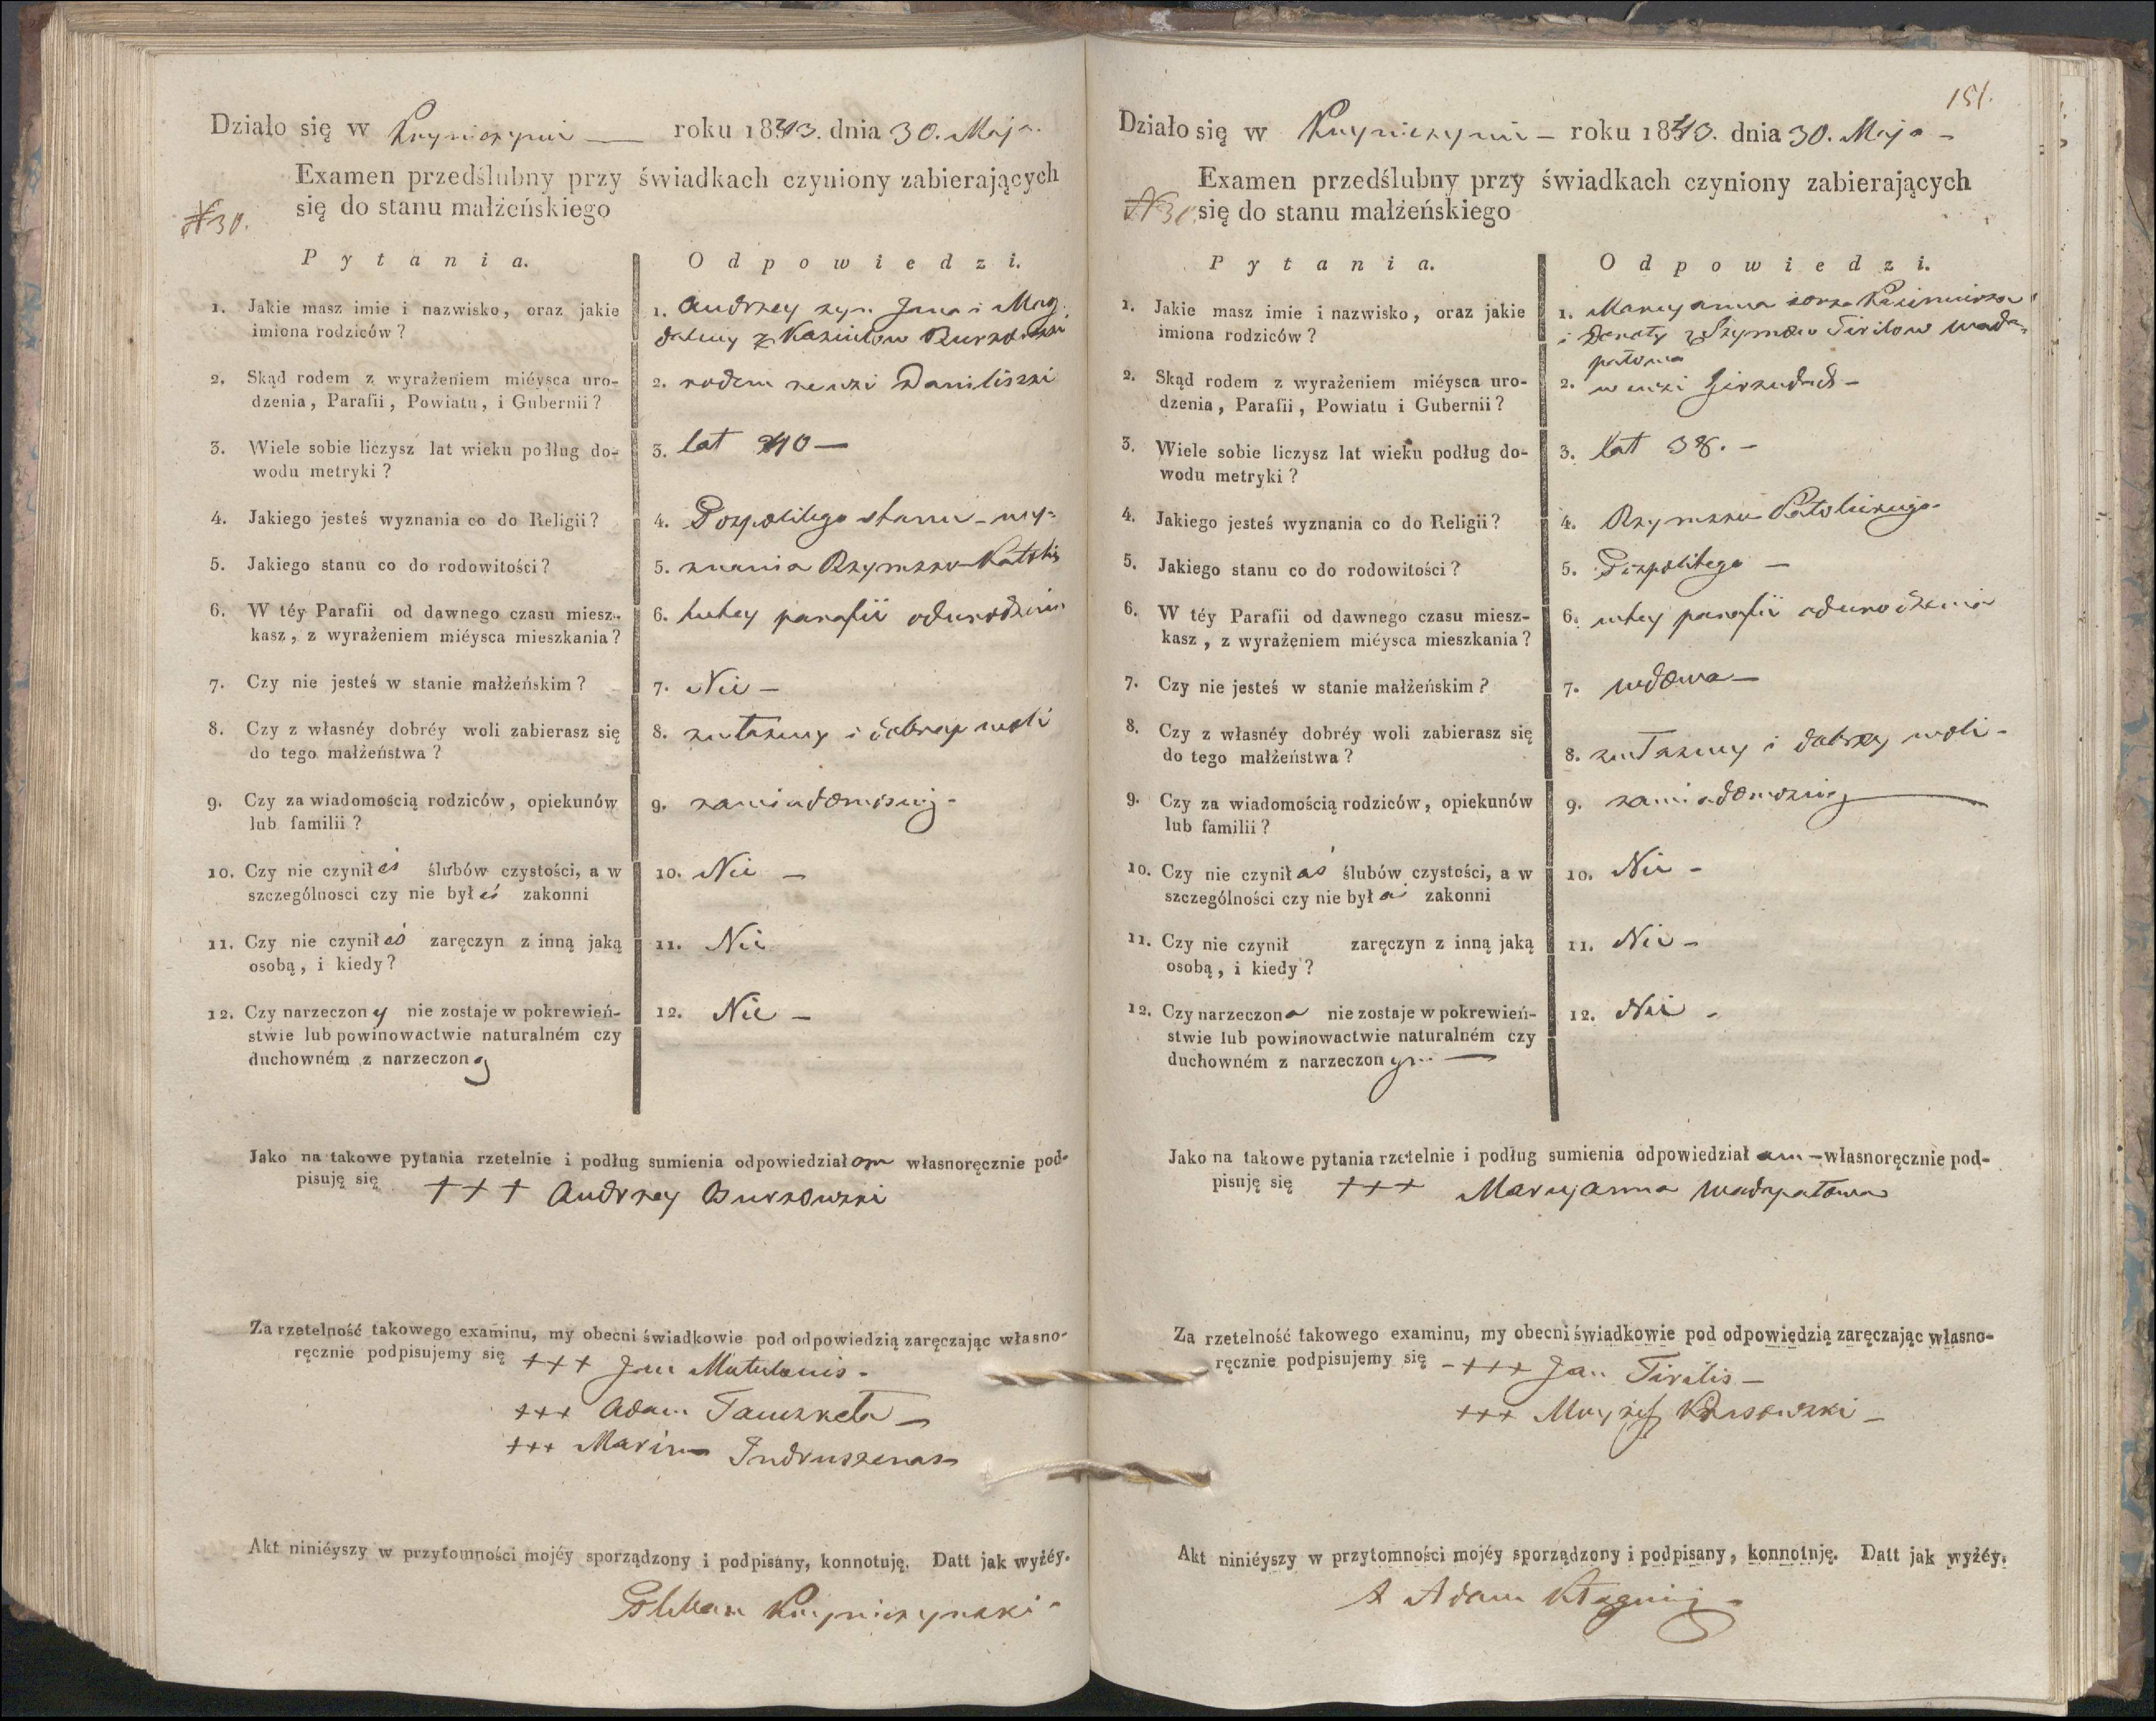 Działo się w Knyniczynie — roku 1843. dnia 30. Maja.
Examen przedślubny przy świadkach czyniony zabierających
się do stanu małżeńskiego
N30.
Pytania. Odpowiedzi.
1. Jakie masz imie i nazwisko, oraz jakie
imiona rodziców?
1. Andrzey syn Jana i Mag
daleny z
2. Skąd rodem z wyrażeniem miéysca uro-
dzenia, Parafii, Powiatu, i Gubernii?
2. rodem ze wsi Daniliszki
3. Wiele sobie liczysz lat wieku podług do-
wodu metryki?
3. lat 40 —
4. Jakiego jesteś wyznania co do Religii?
4. Pospolitego stanu - wy-
5. Jakiego stanu co do rodowitości?
5. znania Rzymsko Katolic
6. W téy Parafii od dawnego czasu miesz-
kasz, z wyrażeniem miéysca mieszkania?
6. tutey parafii od urodzenia
7. Czy nie jesteś w stanie małżeńskim?
7. Nie —
8. Czy z własnéy dobréy woli zabierasz się
do tego małżeństwa?
8. zwłasney i dobrey woli
9. Czy za wiadomością rodziców, opiekunów
lub familii?
9. zawiadomością -
10. Czy nie czynił eś ślubów czystości, a w
szczególnosci czy nie był eś zakonni
10. Nie —
11. Czy nie czynił eś zaręczyn z inną jaką
osobą, i kiedy?
11. Nie
12. Czy narzeczon y nie zostaje w pokrewień-
stwie lub powinowactwie naturalném czy
duchowném z narzeczon ą
12. Nie —
Jako na takowe pytania rzetelnie i podług sumienia odpowiedział em własnoręcznie pod-
pisuję się +++ Andrzey Burzowski
Za rzetelność takowego examinu, my obecni świadkowie pod odpowiedzią zaręczając własno-
ręcznie podpisujemy się +++ Jan Matulanis -
+++ Adam —
+++
Akt niniéyszy w przytomności mojéy sporządzony i podpisany, konnotuję. Datt jak wyżéy.
151.
Działo się w Knyniczynie — roku 1843. dnia 30. Maja —
Examen przedślubny przy świadkach czyniony zabierających
N30. się do stanu małżeńskiego
Pytania. Odpowiedzi.
1. Jakie masz imie i nazwisko, oraz jakie
imiona rodziców?
1. Maryanna corka Kazimirza
i
2. Skąd rodem z wyrażeniem miéysca uro-
dzenia, Parafii, Powiatu i Gubernii?
2. w wsi
3. Wiele sobie liczysz lat wieku podług do-
wodu metryki?
3. lat 38. —
4. Jakiego jesteś wyznania co do Religii?
4. Rzymsko Katolickiego
5. Jakiego stanu co do rodowitości?
5. Pospolitego —
6. W téy Parafii od dawnego czasu miesz-
kasz, z wyrażeniem miéysca mieszkania?
6. wtey parafii od urodzenia
7. Czy nie jesteś w stanie małżeńskim?
7. wdowa —
8. Czy z własnéy dobréy woli zabierasz się
do tego małżeństwa?
8. zwłasney i dobrey woli -
9. Czy za wiadomością rodziców, opiekunów
lub familii?
9. zawiadomością —
10. Czy nie czynił aś ślubów czystości, a w
szczególności czy nie był aś zakonni
10. Nie —
11. Czy nie czynił zaręczyn z inną jaką
osobą, i kiedy?
11. Nie —
12. Czy narzeczon a nie zostaje w pokrewień-
stwie lub powinowactwie naturalném czy
duchowném z narzeczon ym —
12. Nie -
Jako na takowe pytania rzetelnie i podług sumienia odpowiedział am — własnoręcznie pod-
pisuję się +++ Maryanna Wadapatowa
Za rzetelność takowego examinu, my obecni świadkowie pod odpowiedzią zaręczając własno-
ręcznie podpisujemy się — +++ Jan Tirilis —
+++
Akt niniéyszy w przytomności mojéy sporządzony i podpisany, konnotuję. Datt jak wyżéy.
Adam